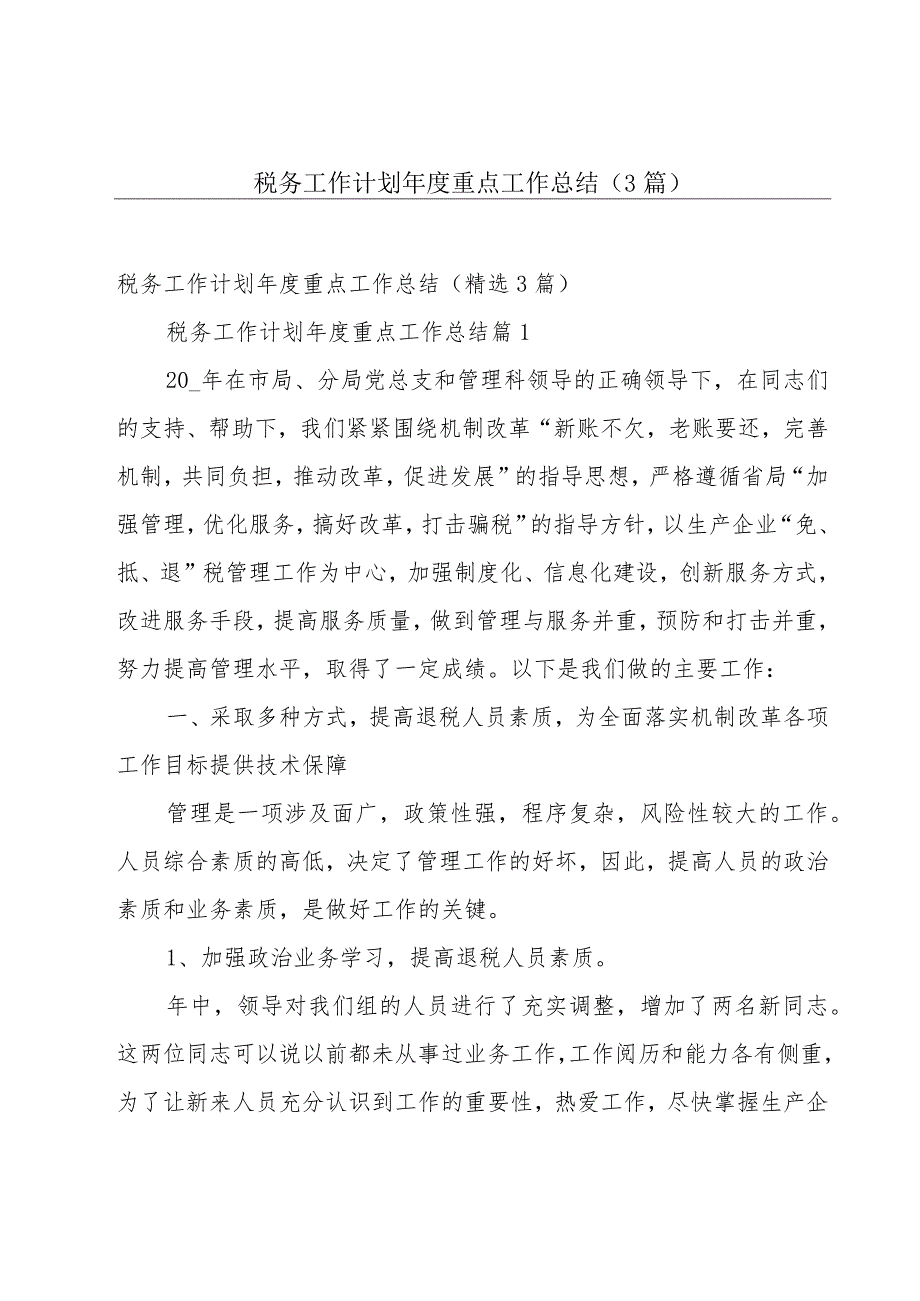 税务工作计划年度重点工作总结（3 篇）
税务工作计划年度重点工作总结（精选 3 篇）
税务工作计划年度重点工作总结篇 1
20_年在市局、分局党总支和管理科领导的正确领导下，在同志们
的支持、帮助下，我们紧紧围绕机制改革“新账不欠，老账要还，完善
机制，共同负担，推动改革，促进发展”的指导思想，严格遵循省局“加
强管理，优化服务，搞好改革，打击骗税”的指导方针，以生产企业“免、
抵、退”税管理工作为中心，加强制度化、信息化建设，创新服务方式，
改进服务手段，提高服务质量，做到管理与服务并重，预防和打击并重，
努力提高管理水平，取得了一定成绩。以下是我们做的主要工作：
一、采取多种方式，提高退税人员素质，为全面落实机制改革各项
工作目标提供技术保障
管理是一项涉及面广，政策性强，程序复杂，风险性较大的工作。
人员综合素质的高低，决定了管理工作的好坏，因此，提高人员的政治
素质和业务素质，是做好工作的关键。
1、加强政治业务学习，提高退税人员素质。
年中，领导对我们组的人员进行了充实调整，增加了两名新同志。
这两位同志可以说以前都未从事过业务工作，工作阅历和能力各有侧重，
为了让新来人员充分认识到工作的重要性，热爱工作，尽快掌握生产企